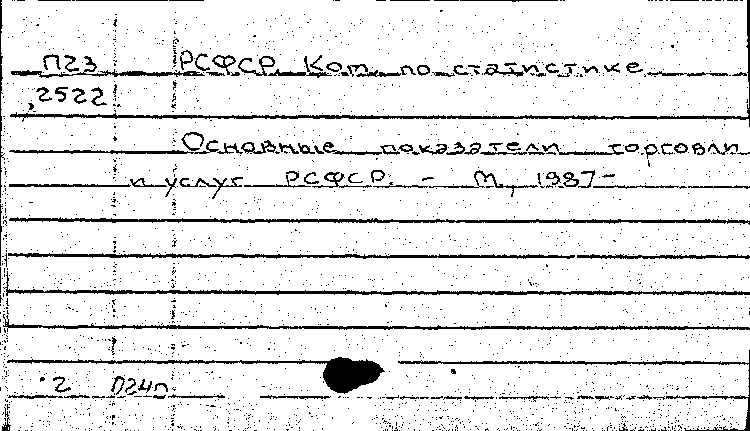 П23 РСФСР. Ком. по статистике
2522
Основные показатели торговли
и услуг РСФСР. - М., 1987-
2 П24о